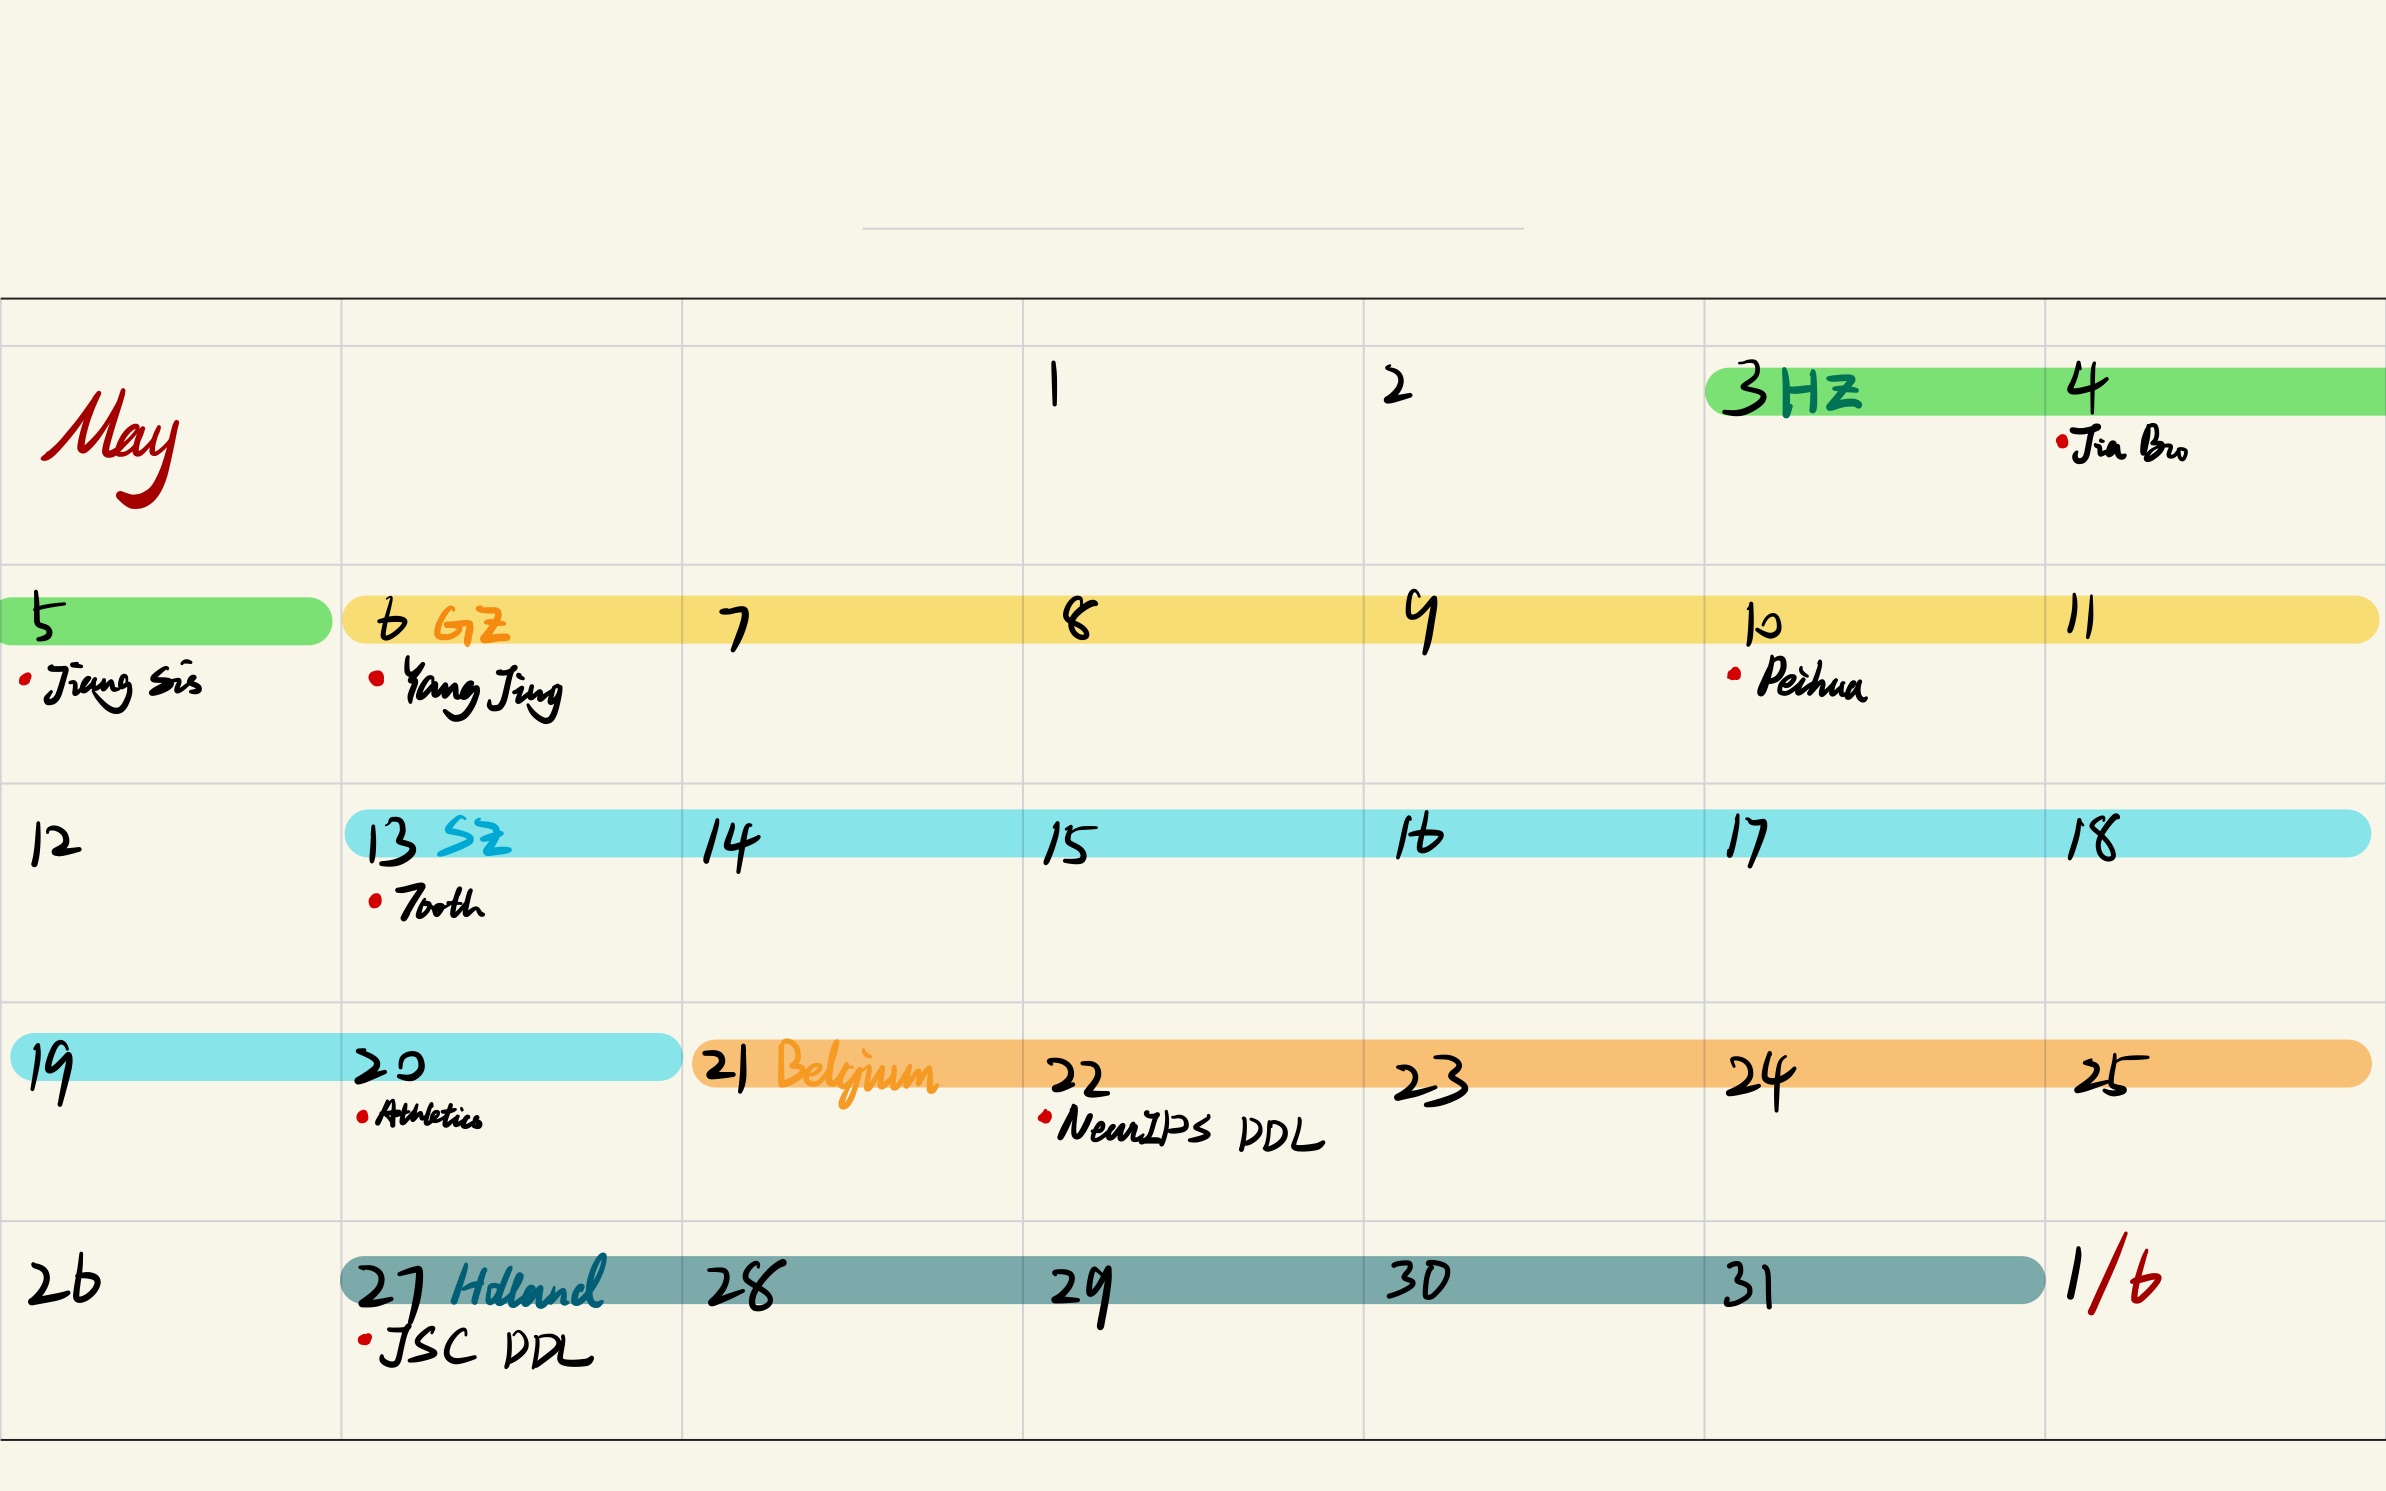 May
1
2
3 HZ
4
Jia Bro
5
Jiang Sis
6 GZ
Yang Jing
7
8
9
10
Peihua
11
12
13 SZ
Tooth
14
15
16
17
18
19
20
Athletics
21 Belgium
22
NeurIPS DDL
23
24
25
26
27 Holland
JSC DDL
28
29
30
31
1/6